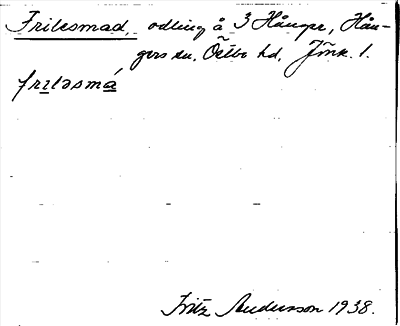 Frilesmad, odling å 3 Hånger, Hån-
gers sn. Östbo hd, Jönk. l.
friləsmá
Fritz Andersson 1938.